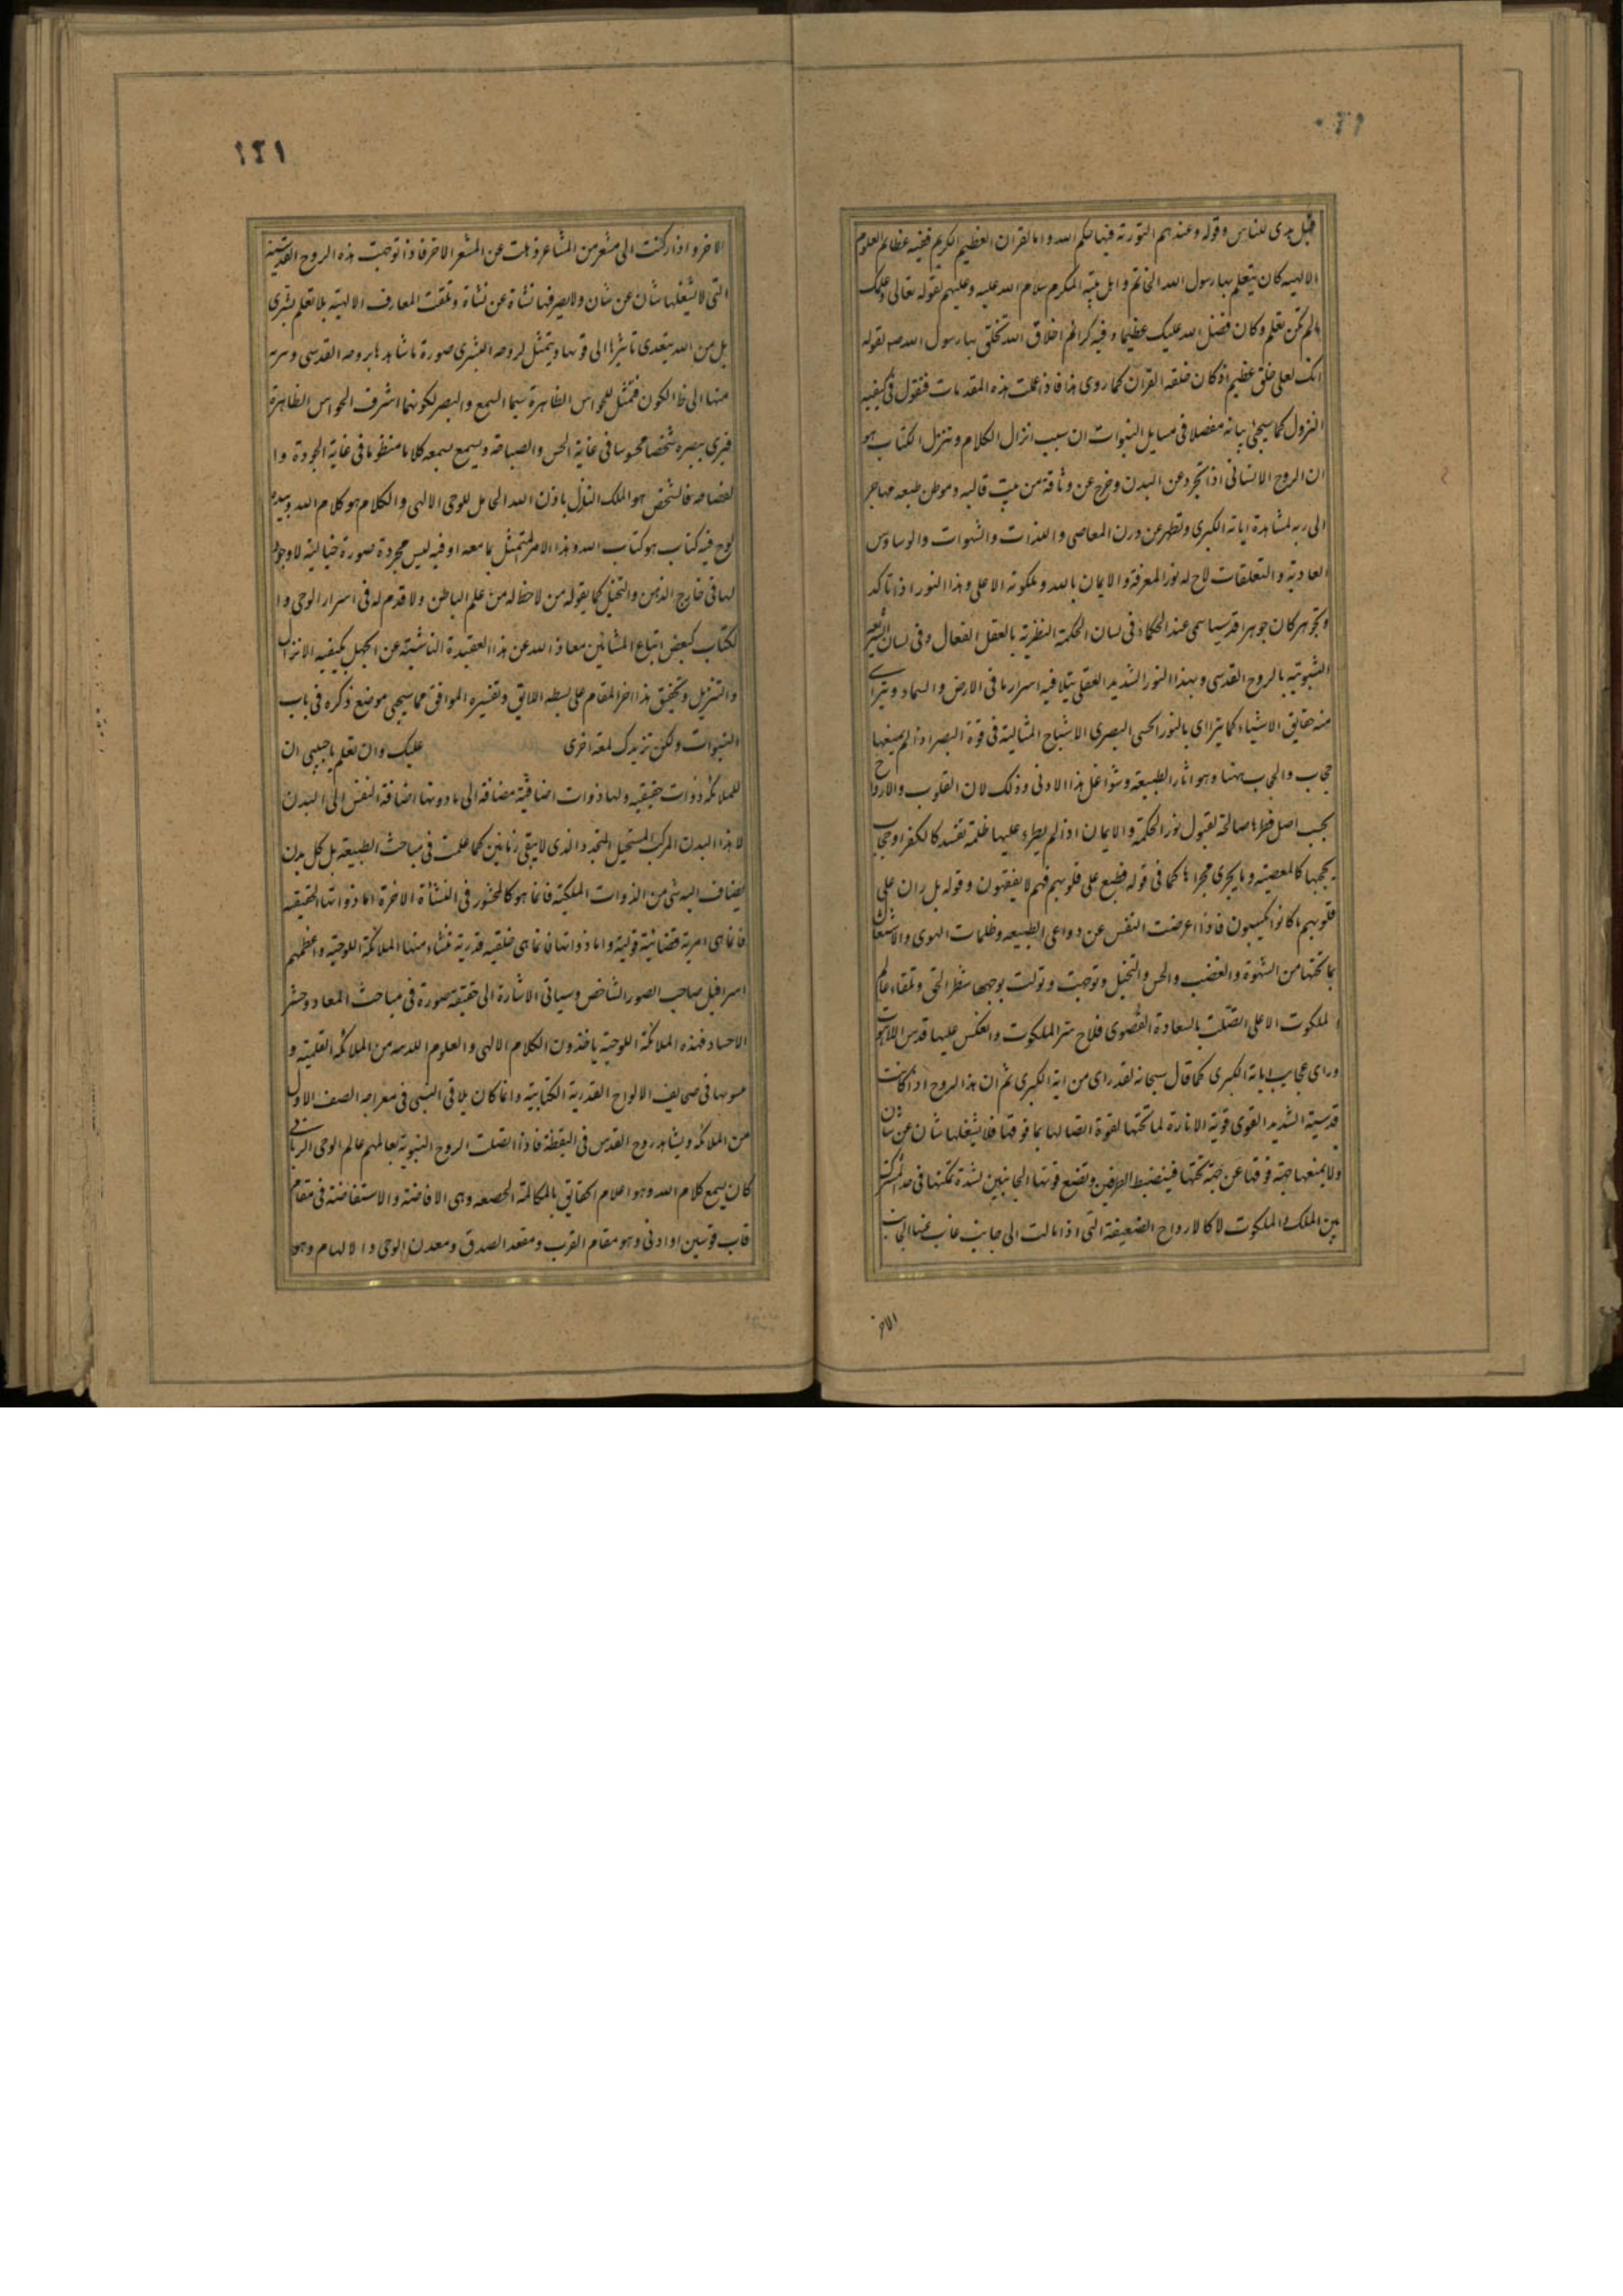 قبل هدی للناس وقوله وعندهم التوریة فیها حکم الله واما القران العظیم الکریم ففیه عظائم العلوم
الالهیه کان یتعلم بها رسول الله الخاتم واهل بیته المکرم سلام الله علیه وعلیهم لقوله تعالی وعلمک
مالم تکن تعلم وکان فضل الله علیک عظیما وفیه کرائم اخلاق الله تخلق بها رسول الله صم لقوله
انک لعلی خلق عظیم اذ کان خلقه القران کما روی هذا فاذا علمت هذه المقدمات فنقول فی کیفیه
النزول کما سیجئ بیانه مفصلا فی مسایل النبوات ان سبب انزال الکلام وتنزل الکتاب هو
ان الروح الانسانی اذا تجرد عن البدن وخرج عن وثاقه من بیت قالبه وموطن طبعه مهاجرا
الی ربه لمشاهدة ایاته الکبری وتطهر عن درن المعاصی واللذات والشهوات والوساوس
العادیة والتعلقات لاح له نور المعرفة والایمان بالله وملکوته الاعلی وهذا النور اذا تاکد
وتجوهر کان جوهرا قدسیا سمی عند الحکماء فی لسان الحکمة النظریة بالعقل الفعال وفی لسان الشریعة
النبویة بالروح القدسی وبهذا النور الشدید العقلی یتلالا فیه اسرار ما فی الارض والسماء ویترای
منه حقایق الاشیاء کما یترا ای بالنور الحسی البصری الاشباح المثالیة فی قوة البصر اذا لم یمنعها
حجاب والحجاب ههنا وهو اثار الطبیعة وشواغل هذا الادنی وذلک لان القلوب والارواح
بحسب اصل فطرها صالحة لقبول نور الحکمة والایمان اذا لم یطرء علیها ظلمة تفسد کالکفر او حجاب
یحجبها کالمعصیة وما یجری مجراها کما فی قوله فطبع علی قلوبهم فهم لا یفقهون وقوله بل ران علی
قلوبهم ما کانوا یکسبون فاذا اعرضت النفس عن دواعی الطبیعه وظلمات الهوی والاشتغال
بما تحتها من الشهوة والغضب والحس والتخیل وتوجهت وتولت بوجهها شطر الحق وتلقاء عالم
الملکوت الاعلی اتصلت بالسعادة القصوی فلاح سر الملکوت وانعکس علیها قدس اللاهوت
ورای عجایب ایاته الکبری کما قال سبحانه لقد رای من ایة الکبری ثم ان هذا الروح اذا کانت
قدسیة الشدید القوی قویة الانارة لما تحتها لقوة اتصالها بما فوقها فلا یشغلها شان عن شان
ولا یمنعها جهة فوقها عن جهة تحتها فیضبط الطرفین وتضع قوتها الجانبین لشدة تمکنها فی حد المشترک
بین الملک والملکوت لا کالارواح الضعیفة التی اذا مالت الی جانب غاب عنها الجانب
الاخر
١٤١
الاخر واذا رکنت الی مشعر من المشاعر ذهلت عن المشعر الاخر فاذا توجهت هذه الروح القدسیة
التی لا یشغلها شان عن شان ولا یصرفها نشاة عن نشاة وتلقت المعارف الالهیة بلا تعلم بشری
بل من الله یتعدی تاثیرها الی قوبها ویتمثل لروحه البشری صورة ما شاهدها بروحه القدسی وسرت
منها الی ظاهر الکون فتمثل للحواس الظاهرة سیما السمع والبصر لکونهما اشرف الحواس الظاهرة
فیری ببصره شخصا محسوسا فی غایة الحس والصباحة ویسمع بسمعه کلاما منظوما فی غایة الجودة وا
لفصاحه فالشخص هو الملک النازل باذن الله الحامل للوحی الالهی والکلام هو کلام الله وبیده
لوح فیه کتاب هو کتاب الله وهذا الامر المتمثل بما معه او فیه لیس مجردة صورة خیالیة لا وجود
لها فی خارج الذهن والتخیل کما یقوله من لا حظ له من علم الباطن ولا قدم له فی اسرار الوحی وا
لکتاب کبعض اتباع المشائین معاذ الله عن هذا العقیدة الناشیة عن الجهل بکیفیه الانزال
والتنزیل وتحقیق هذا اخر المقام علی بسطه اللایق وتفسیره الموافق مما سیجی موضع ذکره فی باب
النبوات ولکن نزیدک لمعة اخری علیک وان تعلم یا حبیبی ان
للملائکه ذوات حقیقیه ولها ذوات اضافیة مضافة الی ما دونها اضافة النفس الی البدن
لا هذا البدن المرکب المستحیل المتجدد الذی لا یبقی زمانین کما علمت فی مباحث الطبیعه بل کل بدن
یضاف الیه شی من الذوات الملکیة فانما هو کالمحشور فی النشأة الاخرة اما ذواتها الحقیقیه
فانما هی امریة قضائیة قولیة واما ذواتها فانما هی خلقیه قدریة تنشاء منها الملائکة اللوحیة واعظمهم
اسرافیل صاحب الصور الشاخص وسیاتی الاشارة الی حقیقة صورة فی مباحث المعاد وحشر
الاجساد فهذه الملائکة اللوحیة یاخذون الکلام الالهی والعلوم اللدنیه من الملائکه القلمیة و
یثبوتها فی صحایف الالواح القدریة الکتابیة وانما کان یلاقی النبی فی معراجه الصف الاول
من الملائکه ویشاهد روح القدس فی الیقظة فاذا اتصلت الروح النبویة بعالمهم عالم الوحی الربانی
کان یسمع کلام الله وهو اعلام الحقایق بالمکالمة الحقیقیه وهی الافاضة والاستفاضة فی مقام
قاب قوسین او ادنی وهو مقام القرب ومقعد الصدق ومعدن الوحی والالهام وهو